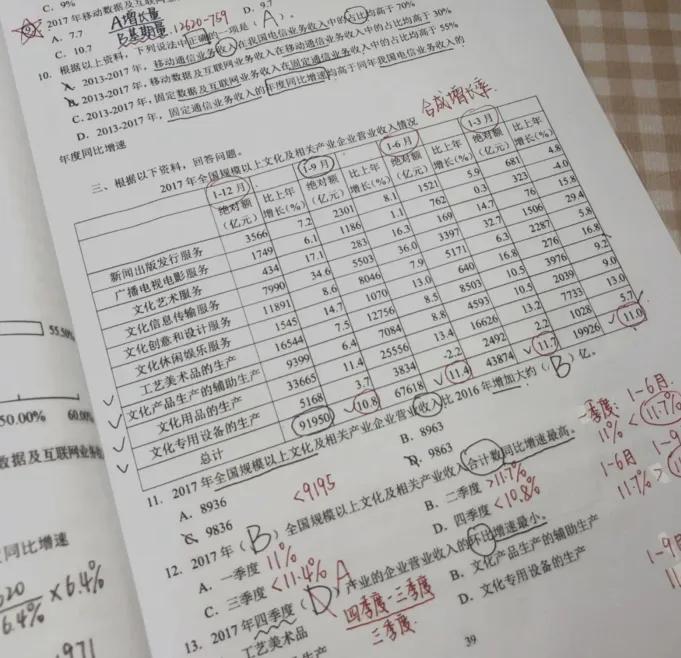 C. 9%
9. 2017年移动数据及互联网业务
A. 7.7
D. 9.7
C. 10.7
A增长量
B基期量
12620-759
10. 根据以上资料，下列说法中正确的一项是（A）.
A. 2013-2017年，移动通信业务收入在我国电信业务收入中的占比均高于70%
B. 2013-2017年，移动数据及互联网业务收入在移动通信业务收入中的占比均高于30%
C. 2013-2017年，固定数据及互联网业务收入在固定通信业务收入中的占比均高于55%
D. 2013-2017年，固定通信业务收入的年度同比增速均高于同年我国电信业务收入的
年度同比增速
合成增长率
三、根据以下资料，回答问题。
2017年全国规模以上文化及相关产业企业营业收入情况
1-12月 1-9月 1-6月 1-3月
绝对额（亿元） 比上年增长(%) 绝对额（亿元） 比上年增长(%) 绝对额（亿元） 比上年增长(%) 绝对额（亿元） 比上年增长(%)
新闻出版发行服务 3566 7.2 2301 8.1 1521 5.9 681 4.8
广播电视电影服务 1749 6.1 1186 1.1 762 0.3 323 -4.0
文化艺术服务 434 17.1 283 16.3 169 14.7 76 15.8
文化信息传输服务 7990 34.6 5503 36.0 3397 32.7 1506 29.4
文化创意和设计服务 11891 8.6 8046 7.9 5171 6.3 2287 5.8
文化休闲娱乐服务 1545 14.7 1070 13.0 640 16.8 276 16.8
工艺美术品的生产 16544 7.5 12756 8.5 8503 10.5 3976 9.2
文化产品生产的辅助生产 9399 6.4 7084 8.8 4593 10.5 2039 9.0
文化用品的生产 33665 11.4 25556 13.4 16626 13.2 7733 13.0
文化专用设备的生产 5168 3.7 3834 -2.2 2492 2.2 1028 5.7
总计 91950 10.8 67618 11.4 43874 11.7 19926 11.0
11. 2017年全国规模以上文化及相关产业企业营业收入比2016年增加大约（B）亿。
A. 8936
B. 8963
C. 9836
D. 9863
<9195
12. 2017年（B）全国规模以上文化及相关产业收入合计数同比增速最高。
A. 一季度 11%
B. 二季度 >11.7%
C. 三季度 <11.4%
D. 四季度 <10.8%
13. 2017年四季度（D）A产业的企业营业收入的环比增速最小。
工艺美术品
B. 文化产品生产的辅助生产
品的生产
D. 文化专用设备的生产
四季度-三季度
三季度
一季度 1-6月
11% < 11.7%
1-6月 1-9
11.7% >
1-9月
39
55.50%
50.00% 60.00%
数据及互联网业务
同比增速
6.4% ×6.4%
971